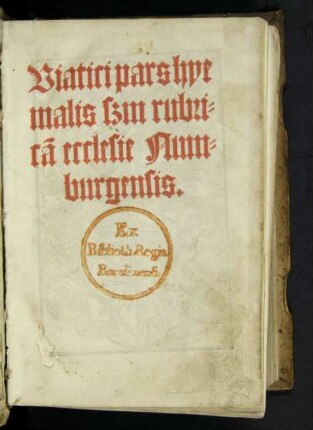 Viatici pars hye
malis scm rubri-
cā ecclesie Num-
burgensis.
Ex
Biblioth. Regia
Berolinensi